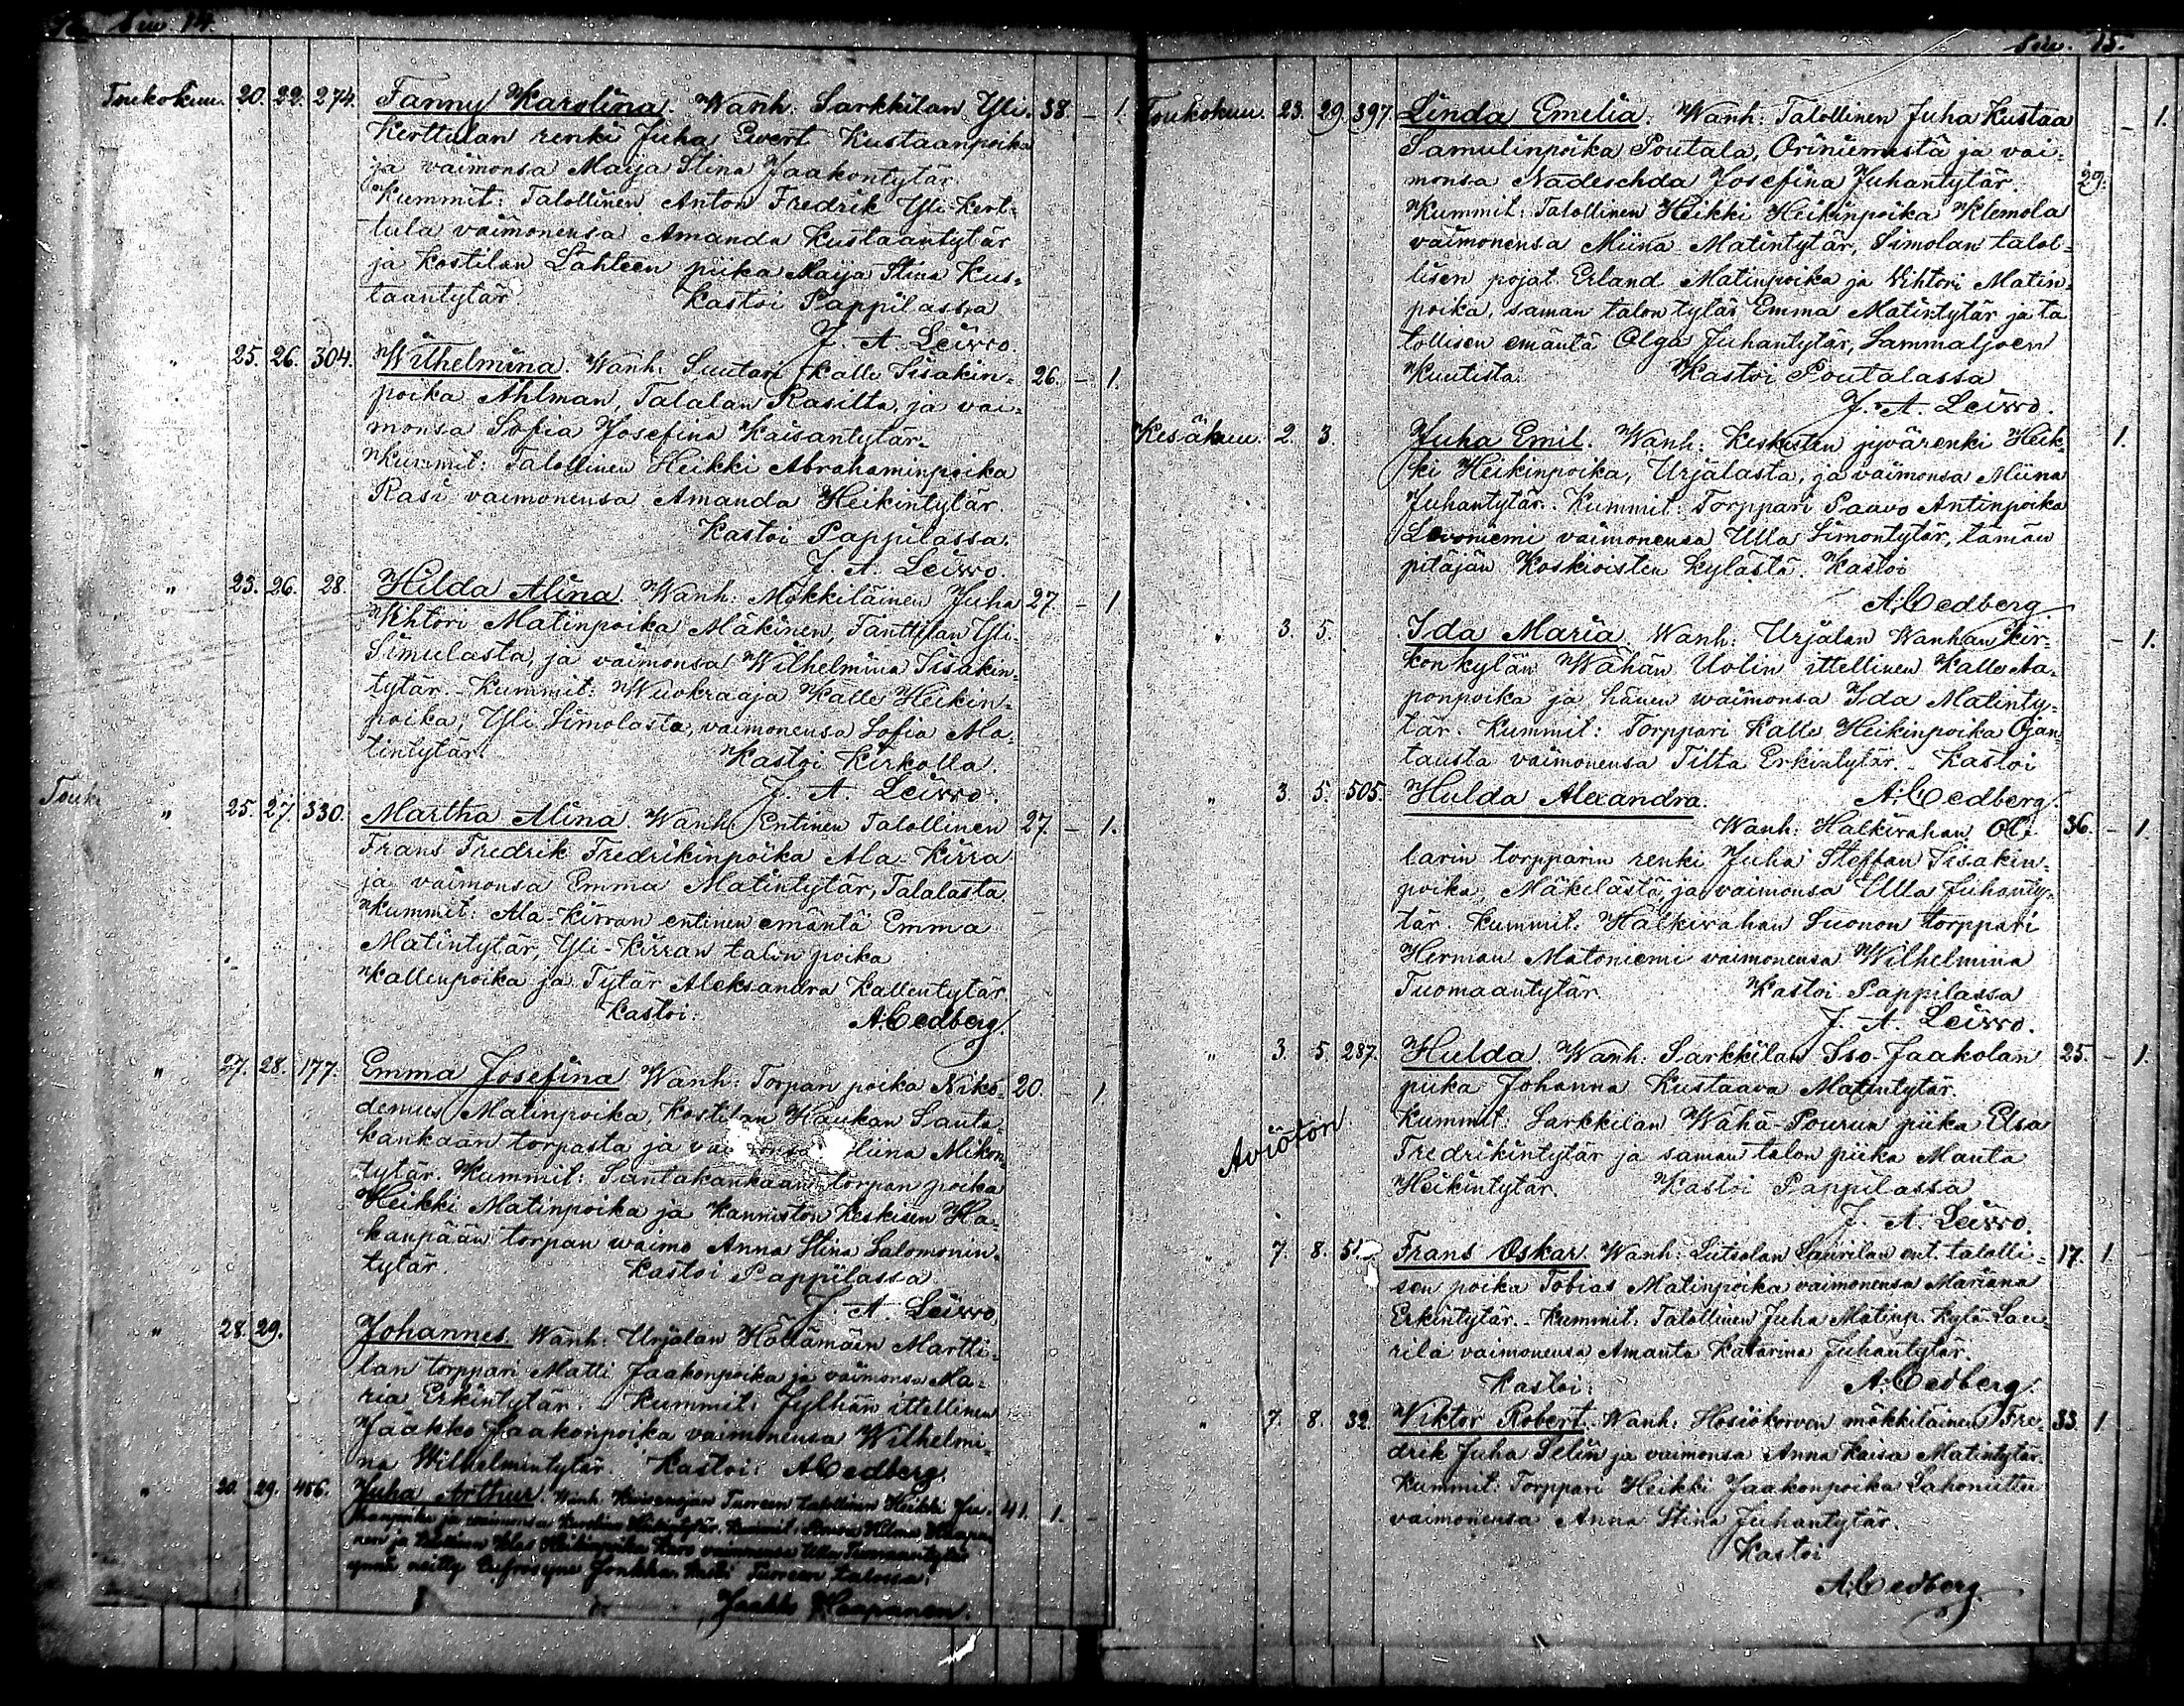 Siw. 14.
Toukokuu. 20. 22. 274. Fanny Karolina. Wanh. Sarkkilan Yli- 38. – 1.
Kerttulan renki Juha Ewert Kustaanpoika
ja vaimonsa Maija Stina Jaakontytär.
Kummit: Talollinen Anton Fredrik Yli-Kert-
tula vaimonensa Amanda Kustaantytär
ja Kostilan Lähteen piika Maija Stina Kus-
taantytär. Kastoi Pappilassa
J. A. Leivvo.
" 25. 26. 304. Wilhelmina. Wanh. Suutari Kalle Iisakin- 26. – 1.
poika Ahlman, Talalan Rasilta, ja vai-
monsa Sofia Josefina Kaisantytär.
Kummit: Talollinen Heikki Abrahaminpoika
Rasi vaimonensa Amanda Heikintytär.
Kastoi Pappilassa.
J. A. Leivvo.
" 23. 26. 28. Hilda Alina. Wanh: Mökkiläinen Juha 27. – 1
Wihtori Matinpoika Mäkinen, Tanttilan Yli-
Simulasta, ja vaimonsa Wilhelmina Iisakin-
tytär. - Kummit: Wuokraaja Kalle Heikin-
poika, Yli Simolasta, vaimonensa Sofia Ma-
tintytär. Kastoi Kirkolla.
J. A. Leivvo.
Touk " 25. 27. 330. Martha Alina. Wanh. Entinen Talollinen 27. – 1.
Frans Fredrik Fredrikinpoika Ala-Kirra
ja vaimonsa Emma Matintytär, Talalasta
Kummit: Ala-Kirran entinen emäntä Emma
Matintytär, Yli-Kirran talon poika
Kallenpoika ja Tytär Aleksandra Kallentytär.
Kastoi: A. Cedberg.
" 27. 28. 177. Emma Josefina. Wanh: Torpan poika Niko- 20. – 1.
demus Matinpoika, Kostilan Haukan Santa-
kankaan torpasta ja vaimonsa Miina Mikon-
tytär. Kummit: Santakankaan torpan poika
Heikki Matinpoika ja Kanniston Keskisen Ha-
kanpään torpan waimo Anna Stina Salomonin-
tytär. Kastoi Pappilassa
J. A. Leivvo
" 28. 29. Johannes. Wanh: Urjalan Hönämäen Martti-
lan torppari Matti Jaakonpoika ja vaimonsa Ma-
ria Erkintytär. Kummit: Jylhän ittellinen
Jaakko Jaakonpoika vaimonensa Wilhelmi-
na Wilhelmintytär. Kastoi: A. Cedberg.
" 20. 29. 456. Juha Arthur. Wanh. Tuoreen talollinen Heikki Ju- 41. 1. –
hanpoika ja vaimonsa Karolina Heikintytär. Kummit: Hilma Haapa-
nen ja Heikinpoika vaimonensa Ulla Tuomaantytär
Eufrosyne Jonkka. Kastoi Tuoreen talossa.
Jaakko Haapanen.
Siw. 15.
Toukokuu. 23. 29. 397. Linda Emelia. Wanh: Talollinen Juha Kustaa – 1.
Samulinpoika Poutala, Oriniemestä ja vai-
monsa Nadeschda Josefina Juhantytär. 29.
Kummit: Talollinen Heikki Heikinpoika Klemola
vaimonensa Miina Matintytär, Simolan talol-
lisen pojat Erland Matinpoika ja Wihtori Matin-
poika, saman talon tytär Emma Matintytär ja ta
tollisen emäntä Olga Juhantytär, Sammaljoen
Kuutista. Kastoi Poutalassa
J. A. Leivvo.
Kesäkuu. 2. 3. Juha Emil. Wanh: Keskisten jyvärenki Heik- 1.
ki Heikinpoika, Urjalasta, ja vaimonsa Miina
Juhantytär. Kummit: Torppari Paavo Antinpoika
Levoniemi vaimonensa Ulla Simontytär, tämän
pitäjän Koskioisten kylästä. Kastoi
A. Cedberg
" 3. 5. Ida Maria. Wanh: Urjalan Wanhan kir- – 1.
konkylän Wähän Uotin ittellinen Kalle Aa-
ponpoika ja hänen waimonsa Ida Matinty-
tär. Kummit: Torppari Kalle Heikinpoika Ojan-
tausta vaimonensa Tilta Erkintytär. - Kastoi
A. Cedberg.
" 3. 5. 505. Hulda Alexandra.
Wanh: Halkivahan Ol- 36. – 1.
larin torpparin renki Juha Steffan Iisakin-
poika, Mäkelästä, ja vaimonsa Ulla Juhanty-
tär. Kummit: Halkivahan Suonon torppari
Herman Matoniemi vaimonensa Wilhelmina
Tuomaantytär. Kastoi Pappilassa
J. A. Leivvo.
" 3. 5. 287. Hulda. Wanh: Sarkkilan Iso-Jaakolan 25. – 1.
piika Johanna Kustaava Matintytär.
Aviötön Kummit: Sarkkilan Wähä-Pourun piika Elsa
Fredrikintytär ja saman talon piika Manta
Heikintytär. Kastoi Pappilassa
J. A. Leivvo.
" 7. 8. 51. Frans Oskar. Wanh: Liitsolan Laurilan ent. talolli- 17. 1.
sen poika Tobias Matinpoika vaimonensa Mariana
Erkintytär. - Kummit: Talollinen Juha Matinp. Kylä-Lau-
rila vaimonensa Amanta Katarina Juhantytär.
Kastoi: A. Cedberg.
" 7. 8. 32. Viktor Robert. Wanh: Hosiökorven mökkiläinen Fre- 33. 1
drik Juha Selin ja vaimonsa Anna Kaisa Matintytär.
Kummit: Torppari Heikki Jaakonpoika Lahoniittu
vaimonensa Anna Stina Juhantytär.
Kastoi
A. Cedberg.